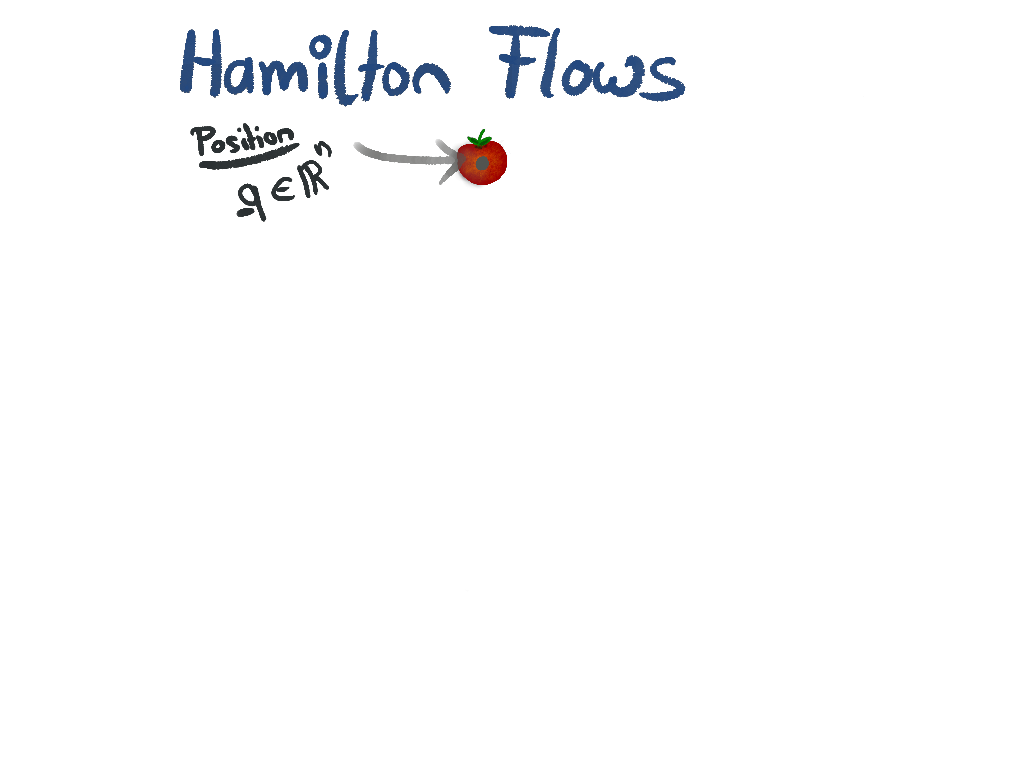 Hamilton Flows
Position
q ∈ ℝⁿ